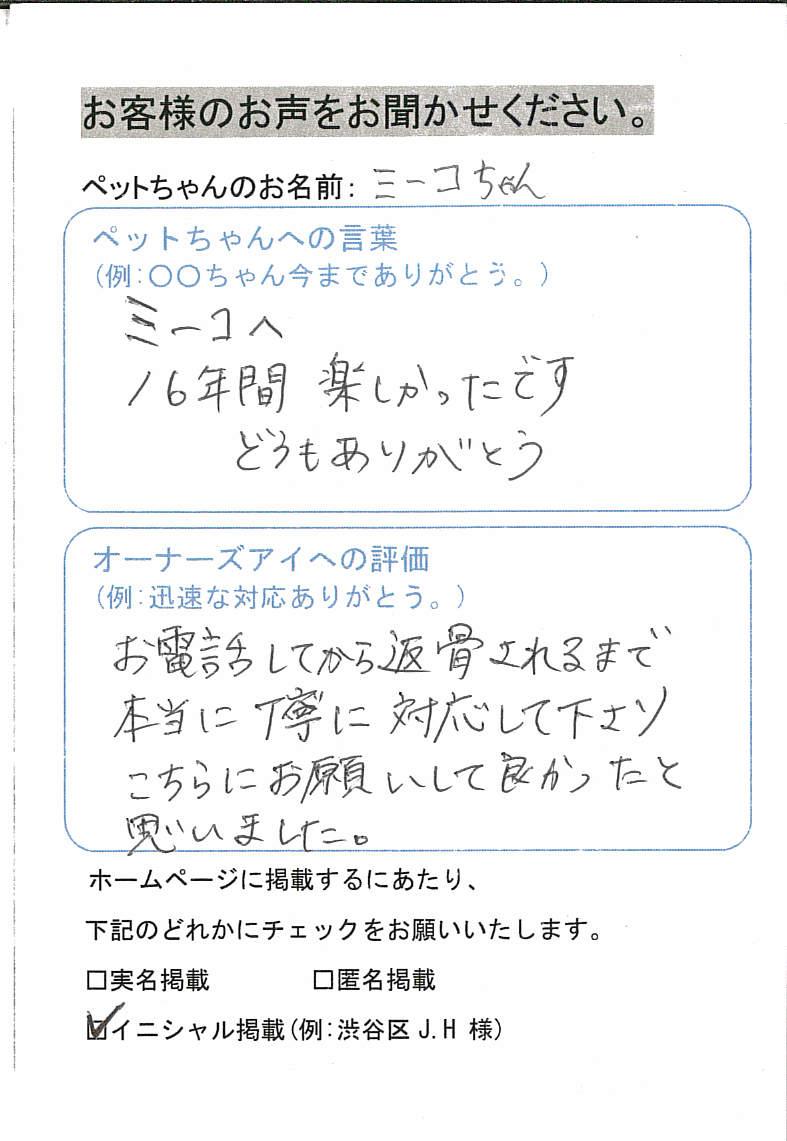 お客様のお声をお聞かせください。
ペットちゃんのお名前: ミーコちゃん
ペットちゃんへの言葉
(例:〇〇ちゃん今までありがとう。)
ミーコへ
16年間 楽しかったです
どうもありがとう
オーナーズアイへの評価
(例:迅速な対応ありがとう。)
お電話してから返骨されるまで
本当に丁寧に対応して下さり
こちらにお願いして良かったと
思いました。
ホームページに掲載するにあたり、
下記のどれかにチェックをお願いいたします。
□実名掲載 □匿名掲載
☑イニシャル掲載(例:渋谷区 J.H 様)